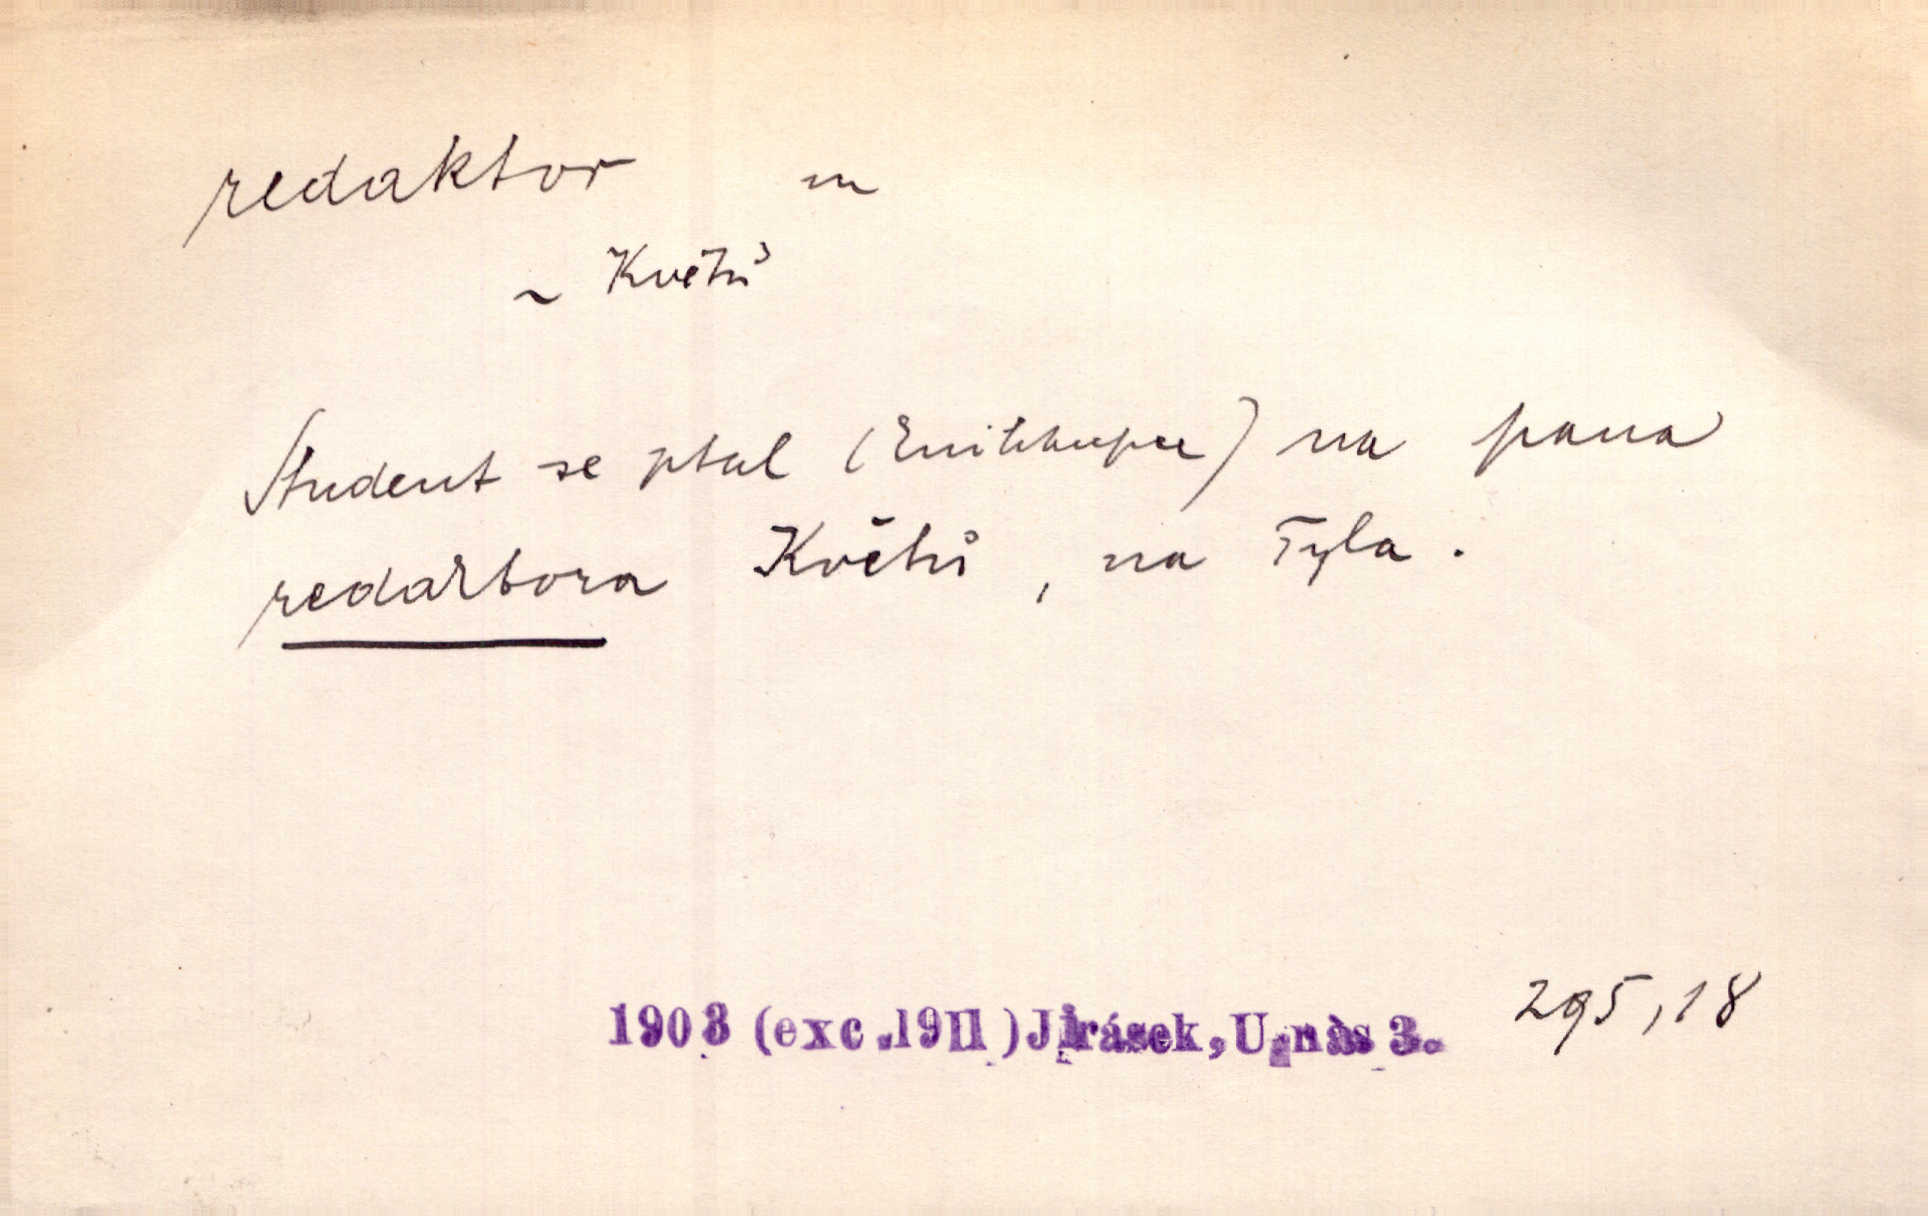 redaktor m
~ Květů
Student se ptal ( ) na pana
redaktora Květů, na Tyla.
1903 (exc.1911) Jirásek, U nás 3. 295,18